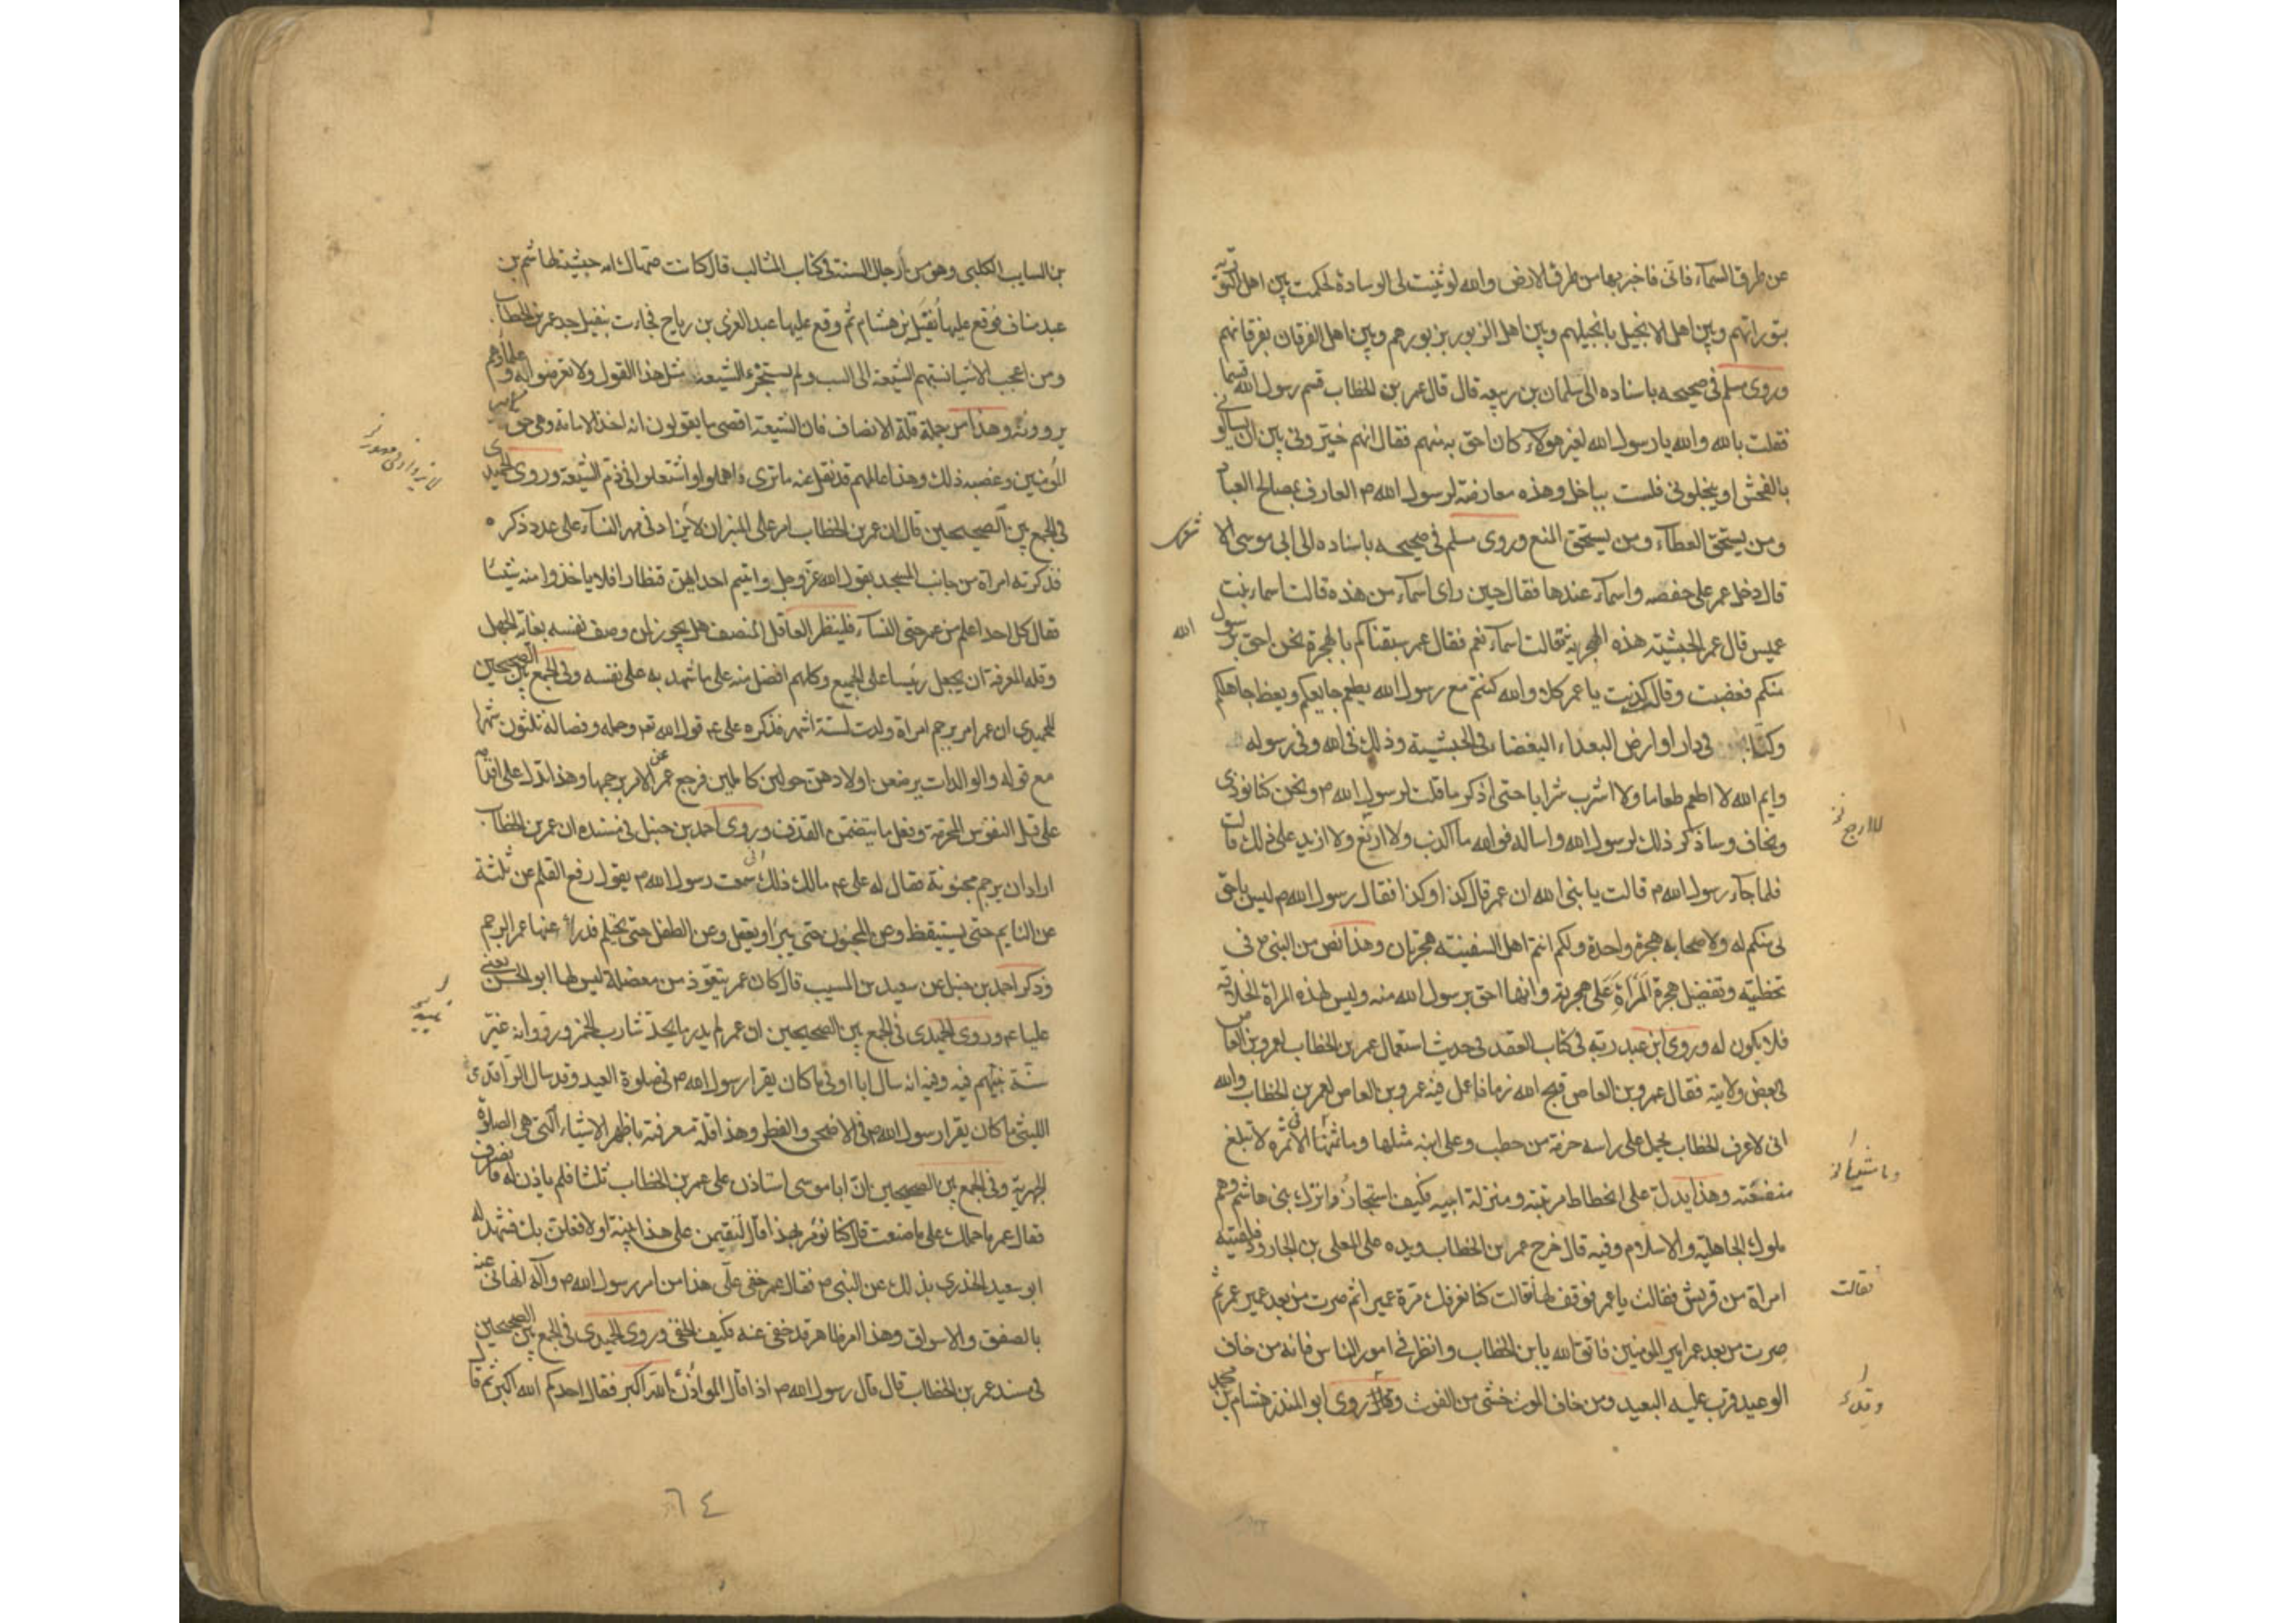 عن طرق السمآء فانى اخبر بها من طرق الارض والله لو ثنيت لى الوسادة لحكمت بين اهل التورية
بتوراتهم وبين اهل الانجيل بانجيلهم وبين اهل الزبور بزبورهم وبين اهل الفرقان بفرقانهم
وروى مسلم فى صحيحه باسناده الى سلمان بن ربيعه قال قال عمر بن الخطاب قسم رسول الله قسما
فقلت بالله والله يا رسول الله لغير هولاء كان احق به منهم فقال انهم خيرونى بين ان يسالونى
بالفحش او يبخلونى فلست بباخل وهذه معارضة لرسول الله م العارف بمصالح العباد
ومن يستحق العطاء ومن يستحق المنع وروى مسلم فى صحيحه باسناده الى ابى موسى الا شعرى
قال دخل عمر على حفصه واسمآء عندها فقال حين راى اسمآء من هذه قالت اسماء بنت
عميس قال عمر الحبشيته هذه البحرية فقالت اسمآء نعم فقال عمر سبقناكم بالهجرة نحن احق برسول الله
منكم فغضبت وقال كذبت يا عمر كلا والله كنتم مع رسول الله يطعم جايعكم ويعظ جاهلكم
وكنا فى دار او ارض البعداء البغضاء فى الحبشية وذلك فى الله وفى رسوله
وايم الله لا اطعم طعاما ولا اشرب شرابا حتى اذكر ما قلت لرسول الله م ونحن كنا نوذى
ونخاف وساذكر ذلك لرسول الله واساله فوالله ما اكذب ولا ازيغ ولا ازيد على ذلك قالت
فلما جآء رسول الله م قالت يا نبى الله ان عمر قال كذا وكذا فقال رسول الله م ليس باحق
بى منكم له ولاصحابه هجرة واحدة ولكم انتم اهل السفينته هجرتان وهذا نص من النبى م فى
تخطئته وتفضيل هجرة المرأة على هجرته وانها احق برسول الله منه وليس لهذه المراة الخلافة
فلا يكون له وروى ابن عبد ربه فى كتاب العقد فى حديث استعمال عمر بن الخطاب لعمرو بن العاص
لبعض ولايته فقال عمرو بن العاص قبح الله زمانا عمل فيه عمرو بن العاص لعمر بن الخطاب والله
انى لاعرف الخطاب يحمل على راسه حزمة من حطب وعلى ابنه مثلها وما ثمنها الا فى ثمرة لا تبلغ
منفعته وهذا يدل على انحطاط مرتبته ومنزلة ابيه فكيف استجازوا ترك بنى هاشم وهم
ملوك الجاهلية والاسلام وفيه قال خرج عمر بن الخطاب ويده على المعلى بن الجارود فلقيته
امراة من قريش فقالت يا عمر فوقف لها فقالت كنا نعرفك مرة عميرا ثم صرت من بعد عمير عمر ثم
صرت من بعد عمر امير المومنين فاتق الله يا بن الخطاب وانظر فى امور الناس فانه من خاف
الوعيد قرب عليه البعيد ومن خاف الموت خشى من الفوت وروى ابو المنذر هشام بن محمد
فقالت
بن السايب الكلبى وهو من رجال السنة فى كتاب المثالب قال كانت صهاك امه حبشية لهاشم بن
عبد مناف فوقع عليها نفيل بن هشام ثم وقع عليها عبد العزى بن رياح فجاءت بنفيل جد عمر بن الخطاب
ومن اعجب الاشيا نسبتهم الشيعة الى السب ولم يستجرء الشيعة مثل هذا القول ولا تعرضوا له وعلماؤهم
يروونه وهذا من جملة قلة الانصاف فان الشيعة اقصى ما يقولون انه اخذ الامامة وهى حق امير
المؤمنين وغصبه ذلك وهذا عالمهم قد نقل عنه ما ترى فاهملوا واشتغلوا فى ذم الشيعة وروى الحميدى
فى الجمع بين الصحيحين قال ان عمر بن الخطاب امر على المنبر ان لا يزاد فى مهر النسآء على عدد ذكره
فذكرته امراة من جانب المسجد بقول الله عز وجل واتيتم احداهن قنطارا فلا ياخذوا منه شيئا
فقال كل احد اعلم من عمر حتى النسآء فلينظر العاقل المنصف هل يجوز لمن وصف نفسه بغاية الجهل
وقله المعرفة ان يجعل رئيسا على الجميع وكلهم افضل منه على ما شهد به على نفسه وفى الجمع بين الصحيحين
للحميدى ان عمر امر برجم امراة ولدت لستة اشهر فذكره على ع قول الله تع وحمله وفصاله ثلثون شهرا
مع قوله والوالدات يرضعن اولادهن حولين كاملين فرجع عمر عن الامر برجمها وهذا يدل على اقدامه
على قتل النفوس المحرمة وفعل ما يتضمن القذف وروى احمد بن حنبل فى مسنده ان عمر بن الخطاب
اراد ان يرجم مجنونة فقال له على ع مالك ذلك انى سمعت رسول الله م يقول رفع القلم عن ثلثة
عن النايم حتى يستيقظ وعن المجنون حتى يبرا ويعقل وعن الطفل حتى يحتلم فدرأ عنها عمر الرجم
وذكر احمد بن حنبل عن سعيد بن المسيب قال كان عمر يتعوذ من معضلة ليس لها ابو الحسن يعنى
عليا ع وروى الحميدى فى الجمع بين الصحيحين ان عمر لم يدر ما يحد شارب الخمر وانه غير
سنة نبيهم فيه وفيه انه سال ابا اوفى ما كان يقرا رسول الله م فى صلوة العيد وقد سال الواقدى
الليثى ما كان يقرا رسول الله م فى الاضحى والفطر وهذا قلة معرفة باظهر الاشياء التى هى الصلوة
الجهرية وفى الجمع بين الصحيحين ان ابا موسى استاذن على عمر بن الخطاب ثلثا فلم ياذن له فانصرف
فقال عمر ما حملك على ما صنعت قال كنا نؤمر بهذا قال لتقيمن على هذا بينة او لافعلن بك فشهد له
ابو سعيد الخدرى بذلك عن النبى م فقال عمر خفى على هذا من امر رسول الله م وآله الهانى عنه
بالصفق والاسواق وهذا امر ظاهر قد خفى عنه فكيف الخفى وروى الحميدى فى الجمع بين الصحيحين
فى مسند عمر بن الخطاب قال قال رسول الله م اذا قال المؤذن الله اكبر فقال احدكم الله اكبر ثم قال
٦٤